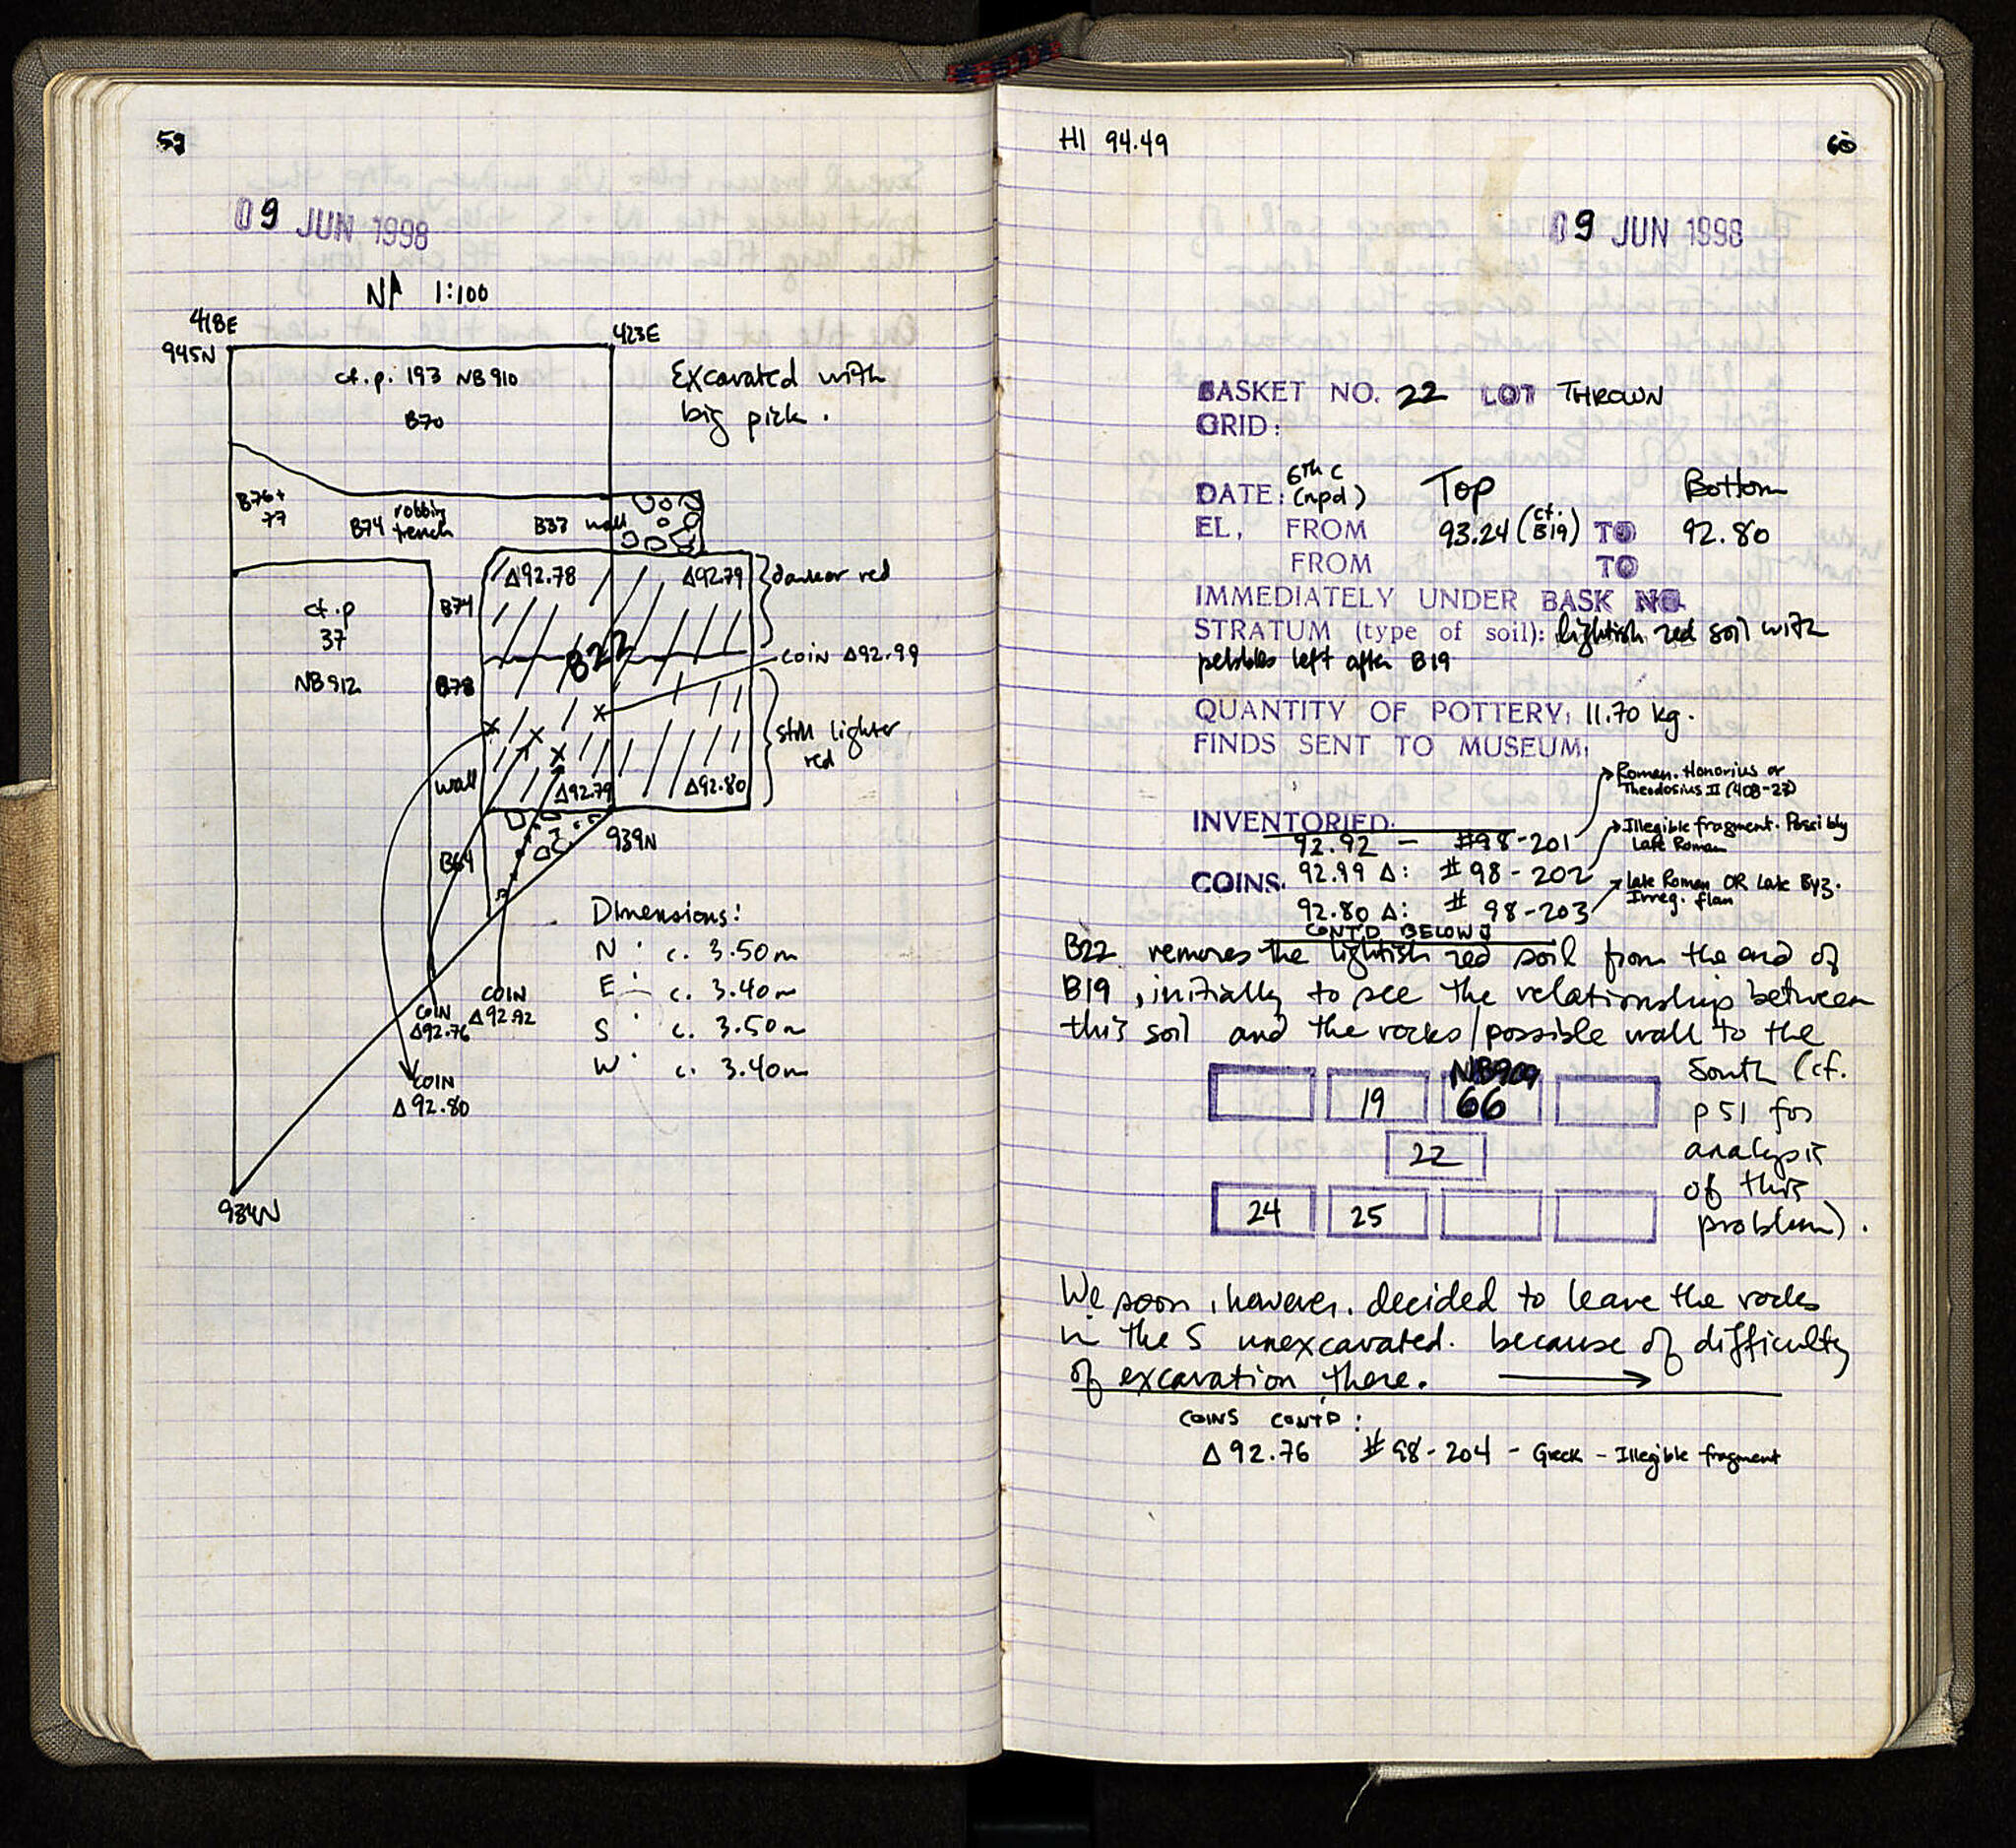 59
09 JUN 1998
N 1:100
418E
945N
423E
cf. p. 193 NB910
B70
Excavated with
big pick.
B76+
77
B74 robbing
trench
B37 wall
Δ92.78
Δ92.79
darker red
cf. p
37
NB912
B74
B22
coin Δ92.99
B78
still lighter
red
wall
Δ92.79
Δ92.80
939N
B64
Dimensions:
N: c. 3.50m
E: c. 3.40m
S: c. 3.50m
W: c. 3.40m
COIN
Δ92.76
COIN
Δ92.92
COIN
Δ92.80
934N
HI 94.49
60
09 JUN 1998
BASKET NO. 22 LOT THROWN
GRID:
6th C
DATE: (npd) Top Bottom
EL, FROM 93.24 (cf. B19) TO 92.80
FROM TO
IMMEDIATELY UNDER BASK NO.
STRATUM (type of soil): lightish red soil with
pebbles left after B19
QUANTITY OF POTTERY: 11.70 kg.
FINDS SENT TO MUSEUM:
Roman. Honorius or
Theodosius II (408-23)
INVENTORIED:
92.92 - #98-201
Illegible fragment. Possibly
Late Roman
COINS. 92.99 Δ: #98-202
Late Roman OR Late Byz.
Irreg. flan
92.80 Δ: # 98-203
CONT'D BELOW
B22 removes the lightish red soil from the end of
B19, initially to see the relationship between
this soil and the rocks/possible wall to the
South (cf.
p 51 for
analysis
of this
problem).
19 NB909 66
22
24 25
We soon, however, decided to leave the rocks
in the S unexcavated. because of difficulty
of excavation there.
COINS CONT'D:
Δ 92.76 #98-204 - Greek - Illegible fragment